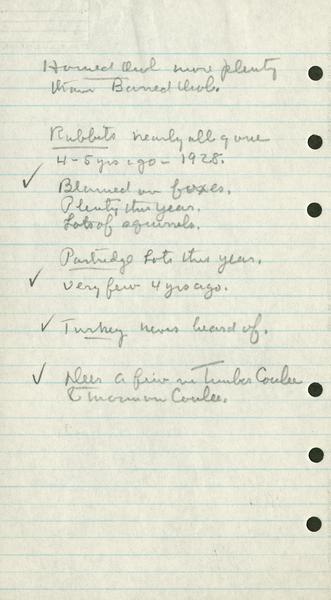 Horned Owl more plenty
than Barred Owl.
Rabbits nearly all gone
4-5 yrs ago - 1928.
✓ Blamed on foxes.
Plenty this year.
Lots of squirrels.
Partridge Lots this year.
✓ Very few 4 yrs ago.
✓ Turkey never heard of.
✓ Deer a few in Timber Coulee
& Mormon Coulee.